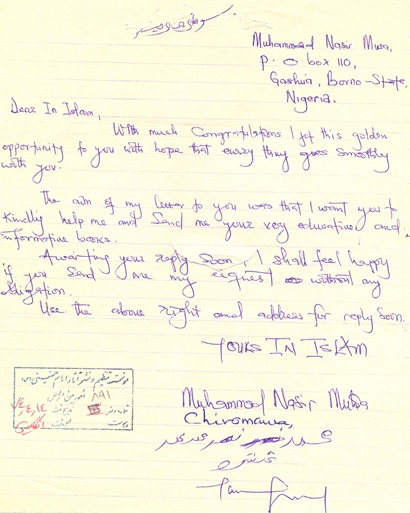 Muhammad Nasir Musa,
P. O box 110,
Gashua, Borno-State,
Nigeria.
Dear In Islam,
With much Congratulations I got this golden
opportunity to you with hope that every thing goes smoothly
with you.
The aim of my letter to you was that I want you to
Kindly help me and Send me your very educative and
informative books.
Awaiting your reply Soon, I shall feel happy
if you Send me my request without any
obligation.
Use the above right and address for reply Soon.
YOURS IN ISLAM
Muhammad Nasir Musa
Chiromawa,
مؤسسه تنظیم و نشر آثار امام خمینی
۸۹۱